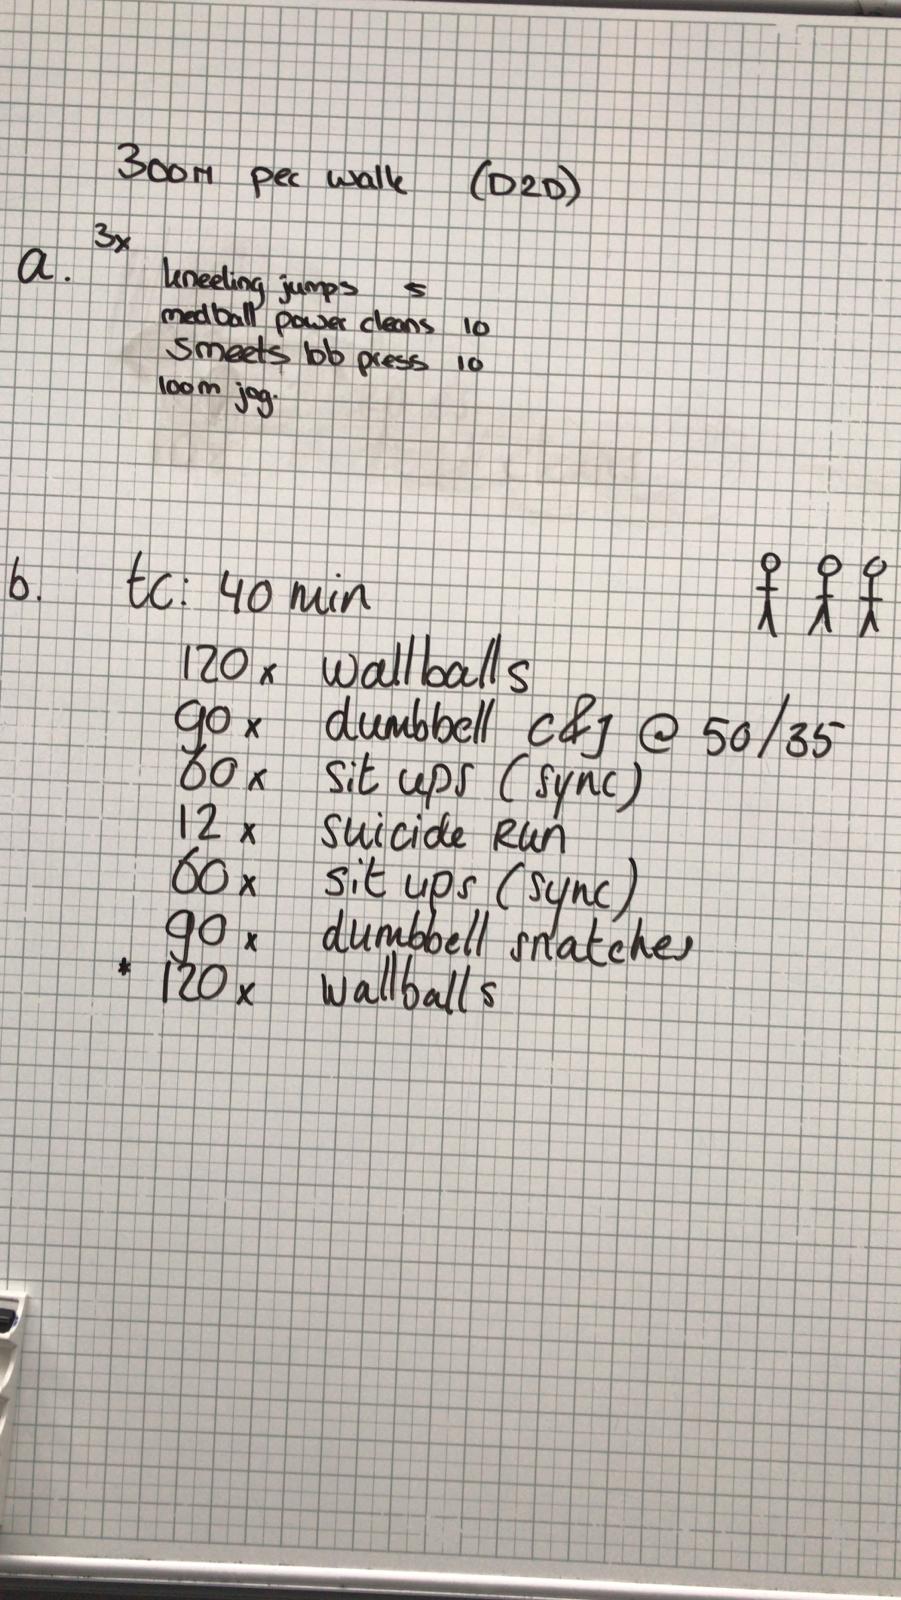 300M pec walk (D2D)
a. 3x
kneeling jumps 5
medball power cleans 10
Smeets bb press 10
100m jog.
b. tc: 40 min
120x wallballs
90x dumbbell C&J @ 50/35
60x sit ups (sync)
12x suicide Run
60x sit ups (sync)
90x dumbbell snatches
* 120x wallballs